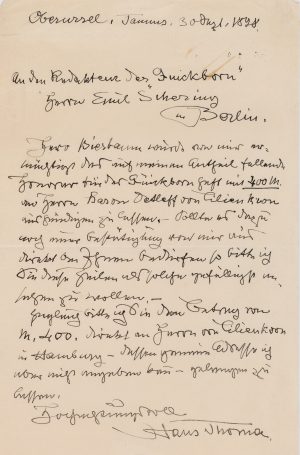 Oberursel, Taunus. 30 Dezb. 1898.
An den Redakteur des "Quickborn"
Herrn Emil Schering
in Berlin.
Herr Bierbaum wurde von mir er-
mächtigt das auf meinen Antheil fallende
Honorar für das Quickborn Heft mit 400 M.
an Herrn Baron Detleff von Liliencron
aushändigen zu lassen. Sollte es dazu
noch einer Bestätigung von mir aus
direkt an Ihnen bedürfen so bitte ich
Sie diese Zeilen als solche gefälligst an-
sehen zu wollen. –
bitte ich den Betrag von
M. 400. direkt an Herrn von Liliencron
in Hamburg – dessen genaue Adresse ich
aber nicht angeben kann – gelangen zu
lassen.
Hochachtungsvoll
Hans Thoma.